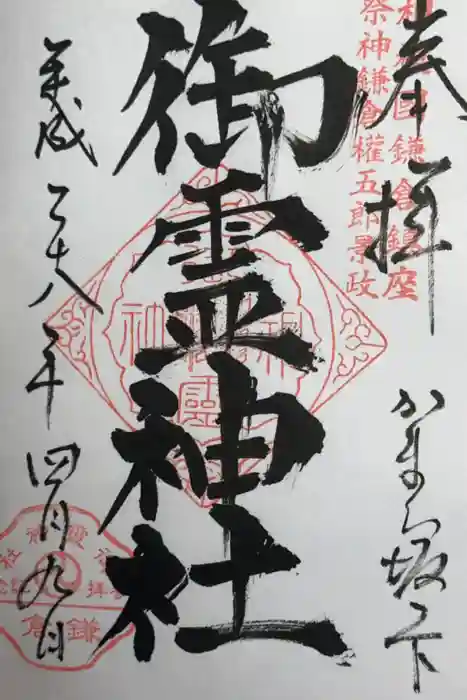 奉拝
相模国鎌倉鎮座
祭神鎌倉權五郎景政
かまくら坂ノ下
御霊神社
平成二十八年四月九日
鎌倉